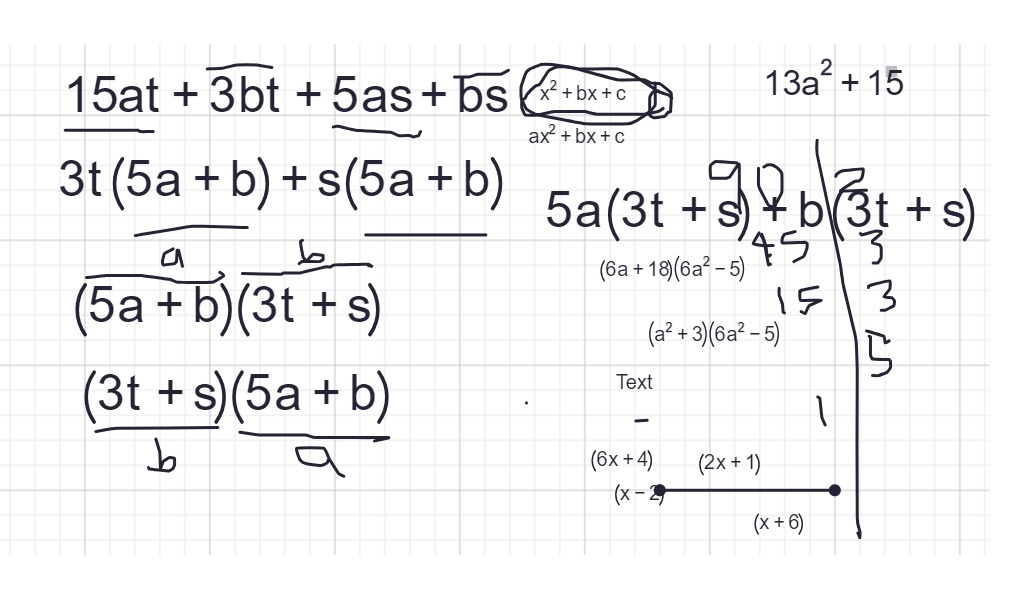 15at + 3bt + 5as + bs
x² + bx + c
ax² + bx + c
13a² + 15
3t(5a + b) + s(5a + b)
a
b
(5a + b)(3t + s)
(3t + s)(5a + b)
b
a
5a(3t + s) + b(3t + s)
90 2
45 3
15 3
5
1
(6a + 18)(6a² − 5)
(a² + 3)(6a² − 5)
Text
−
(6x + 4)
(2x + 1)
(x − 2)
(x + 6)